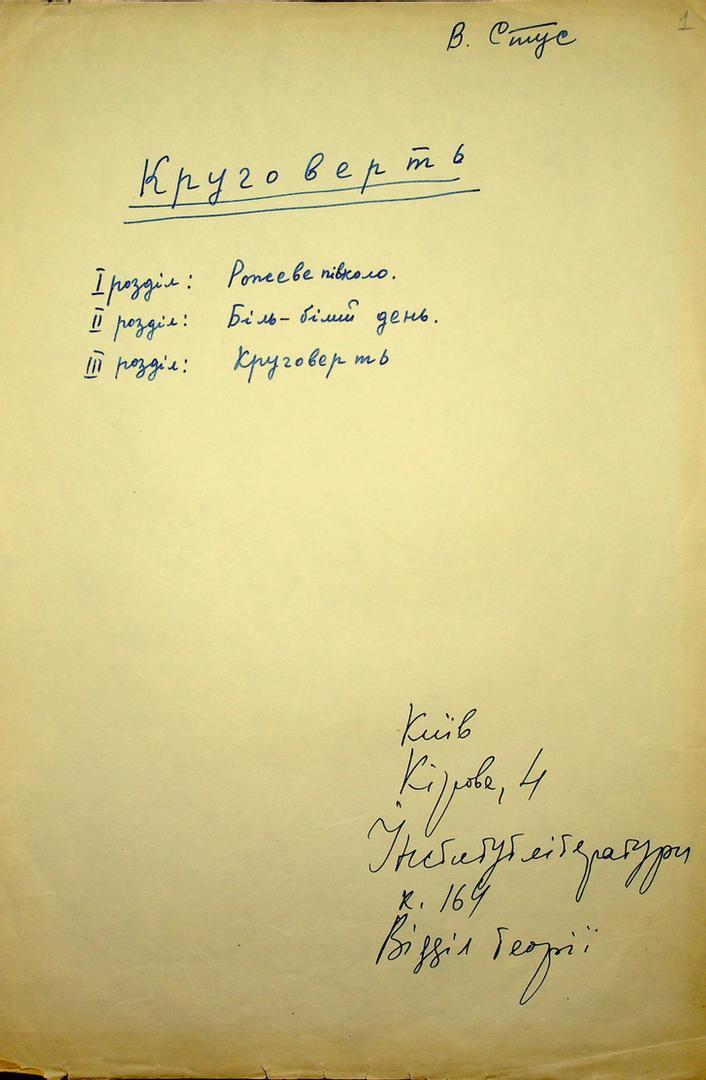 1
В. Стус
Круговерть
I розділ: Рожеве півколо.
II розділ: Біль-білий день.
III розділ: Круговерть
Київ
Кірова, 4
Інститут літератури
к. 164
Відділ теорії